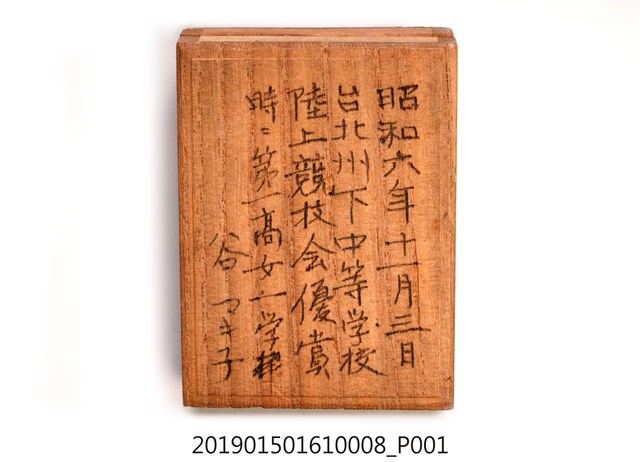 昭和六年十一月三日
台北州下中等学校
陸上競技会優賞
時ニ第一高女一学年
谷マキ子
201901501610008_P001